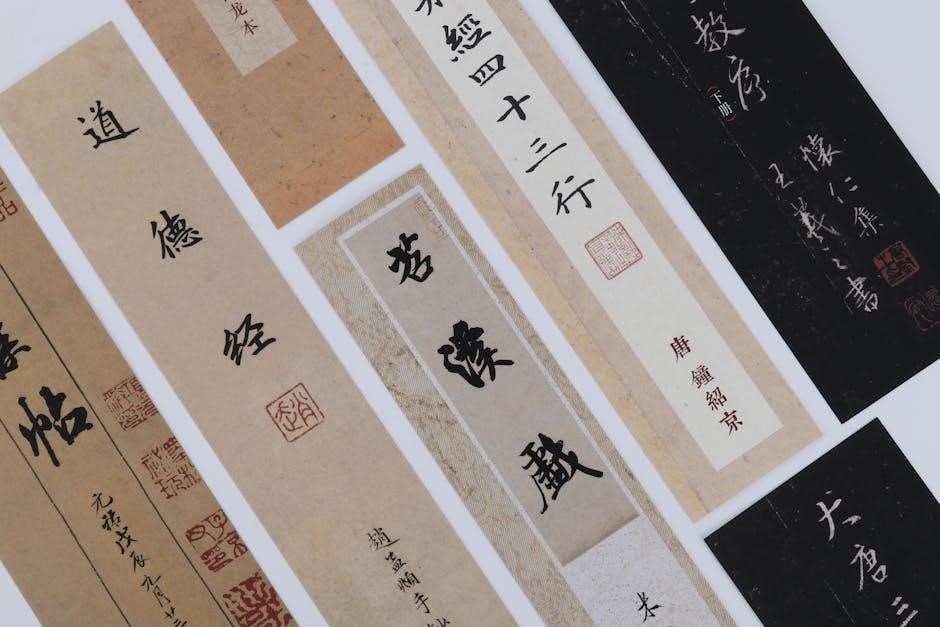 帖
元祐戊辰九月廿三
道德经
趙孟頫手
龙本
苕溪戲
米
經四十三行
唐鐘紹京
教序
(下册)
懷仁集
王羲之書
大唐三